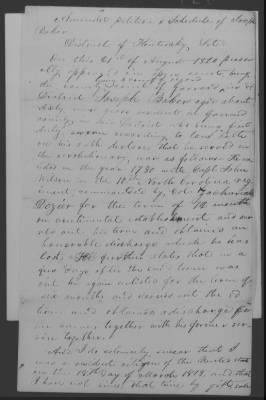 Amended petition & Schedule of Joseph
Baker
District of Kentucky, Sct.
On this 21st of August 1820 personally
appeared in open court being
a court of record
the county court of Garrard in sd
District Joseph Baker aged about
sixty four years resident in Garrard
county in sd District who being first
duly sworn according to law doth
on his oath declare that he served in
the revolutionary war as follows He en
listed in the year 1780 with Capt. John
Nelson in the 10th North Carolina reg
iment commanded by Col.
Dozier for the term of 12 months
on continental establishment and serv
ed out his time and obtained an
honorable discharge which he has
lost, He further states that in a
few days after the said time was
out he again enlisted for the term of
six months and served out the sd
time and obtained a discharge for
the same, together with his former ser
vice together.
And I do solemnly swear that I
was a resident citizen of the United States
on the 18th day of March 1818, and that
I have not since that time by gift sale